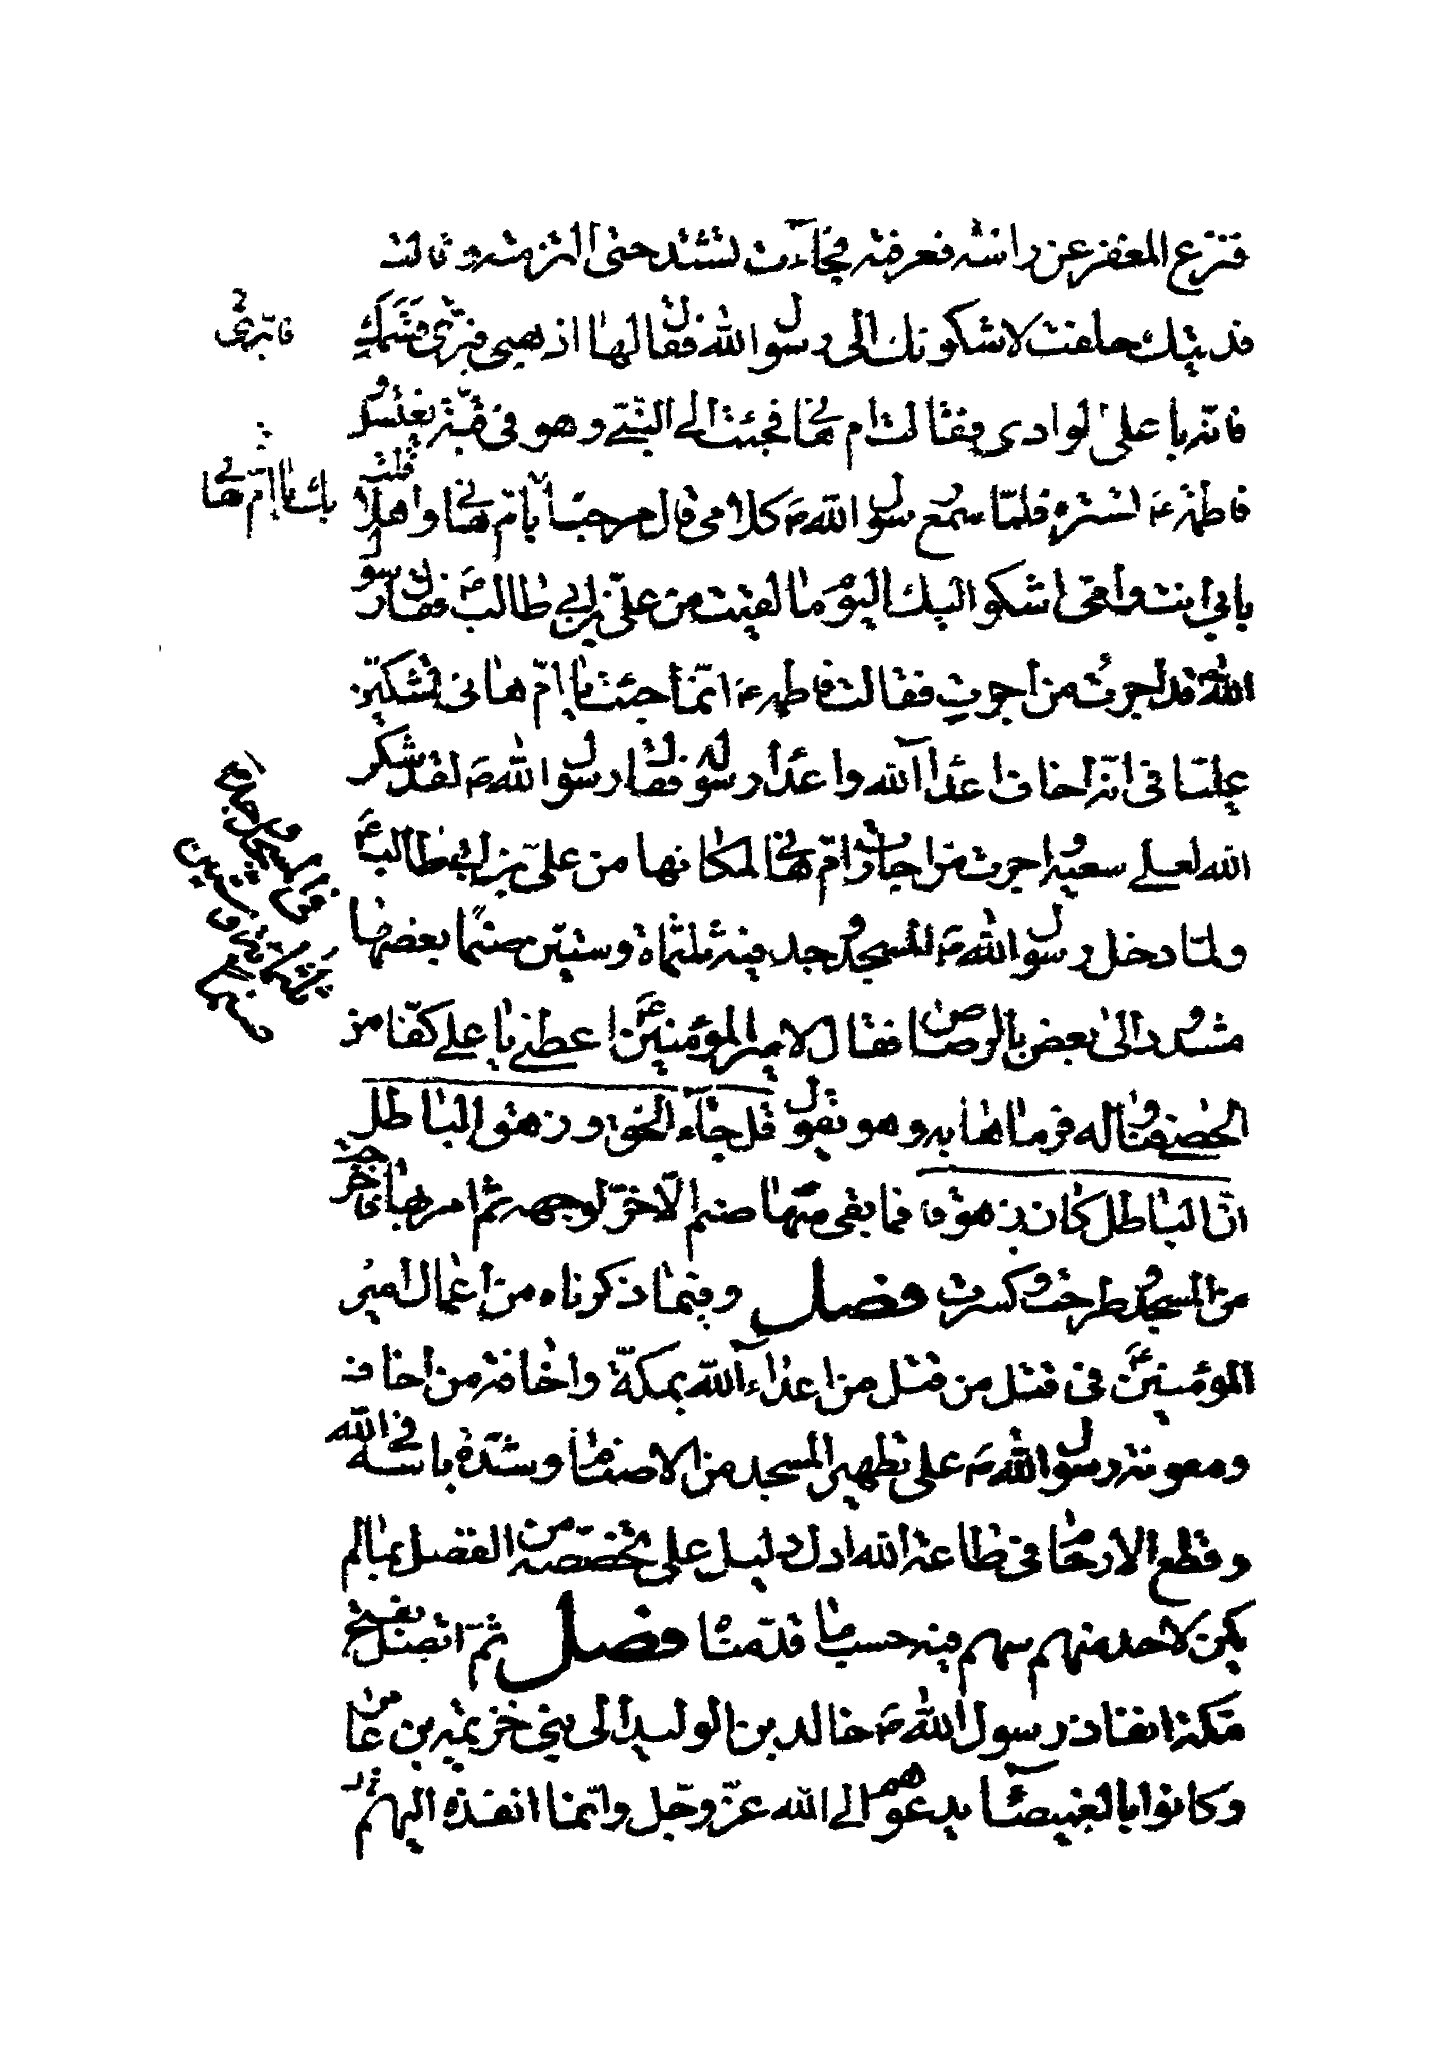 فنزع المغفر عن راسه فعرفته فجاءت تشتد حتى التزمته وقالت
فديتك حلفت لاشكونك الى رسول الله فقال لها اذهبي فبرّي قسمك
فانه باعلى الوادي فقالت ام هاني فجئت الى النبي وهو في قبّة يغتسل و
فاطمة ع تستره فلمّا سمع رسول الله ص كلامي قال مرحبا بامّ هاني واهلا قلت
بابي انت وامّي اشكو اليك اليوم ما لقيت من عليّ بن ابي طالب ع فقال رسول
الله ص قد اجرت من اجرت فقالت فاطمة ع انّما جئت يا امّ هاني تشكين
عليّا في انّه اخاف اعداء الله واعداء رسوله فقال رسول الله ص لقد شكر
الله لعلي سعيه واجرت من اجارت امّ هاني لمكانها من عليّ بن ابي طالب ع
ولمّا دخل رسول الله ص المسجد وجد فيه ثلثماة وستّين صنما بعضها
مشدود الى بعض بالرصاص فقال لامير المؤمنين ع اعطني يا علي كفّا من
الحصى فناوله فرماها به وهو يقول قل جاء الحق وزهق الباطل
انّ الباطل كان زهوقا فما بقي منها صنم الّا خرّ لوجهه ثمّ امر بها فاخرجت
من المسجد وطرحت وكسرت فصل وفيما ذكرناه من اعمال امير
المؤمنين ع في قتل من قتل من اعداء الله بمكّة واخافة من اخاف
ومعونة رسول الله ص على تطهير المسجد من الاصنام وشدّة باسه في الله
وقطع الارحام في طاعة الله ادل دليل على تخصّصه من الفضل بما لم
يكن لاحد منهم سهم فيه حسب ما قدّمناه فصل ثمّ اتصل بفتح
مكة انفاذ رسول الله ص خالد بن الوليد الى بني خزيمة بن عامر
وكانوا بالغميصاء يدعوهم الى الله عزّ وجل وانّما انفذه اليهم
فابرّي
بك يا امّ هاني